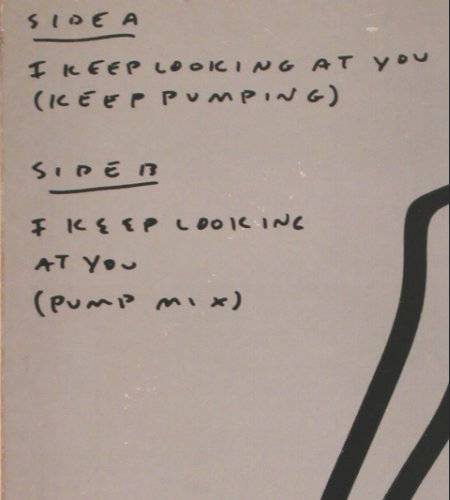 SIDE A
I KEEP LOOKING AT YOU
(KEEP PUMPING)
SIDE B
I KEEP LOOKING
AT YOU
(PUMP MIX)